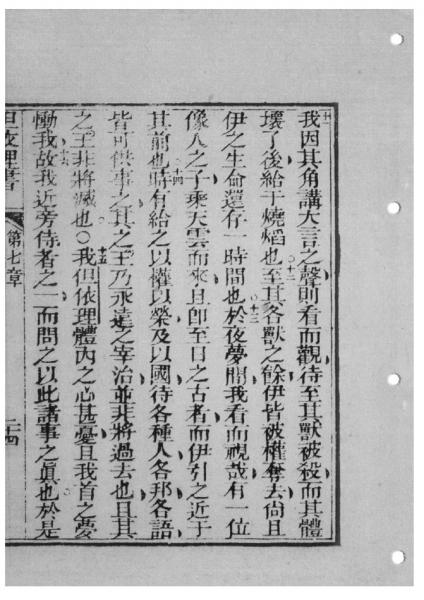 十一我因其角講大言之聲則看而觀待至其獸被殺而其體
壞了後給于燒熖也十二至其各獸之餘伊皆被權奪去尙且
伊之生命還存一時間也十三於夜夢間我看而視哉有一位
像人之子乘天雲而來且卽至日之古者而伊引之近于
其前也十四時有給之以權以榮及以國待各種人各邦各語
皆可供事之其之王乃永遠之宰治並非將過去也且其
之王非將滅也○十五我但依理體內之心甚憂且我首之夢
慟我十六故我近旁侍者之一而問之以此諸事之眞也於是
但依理書
第七章
二十四